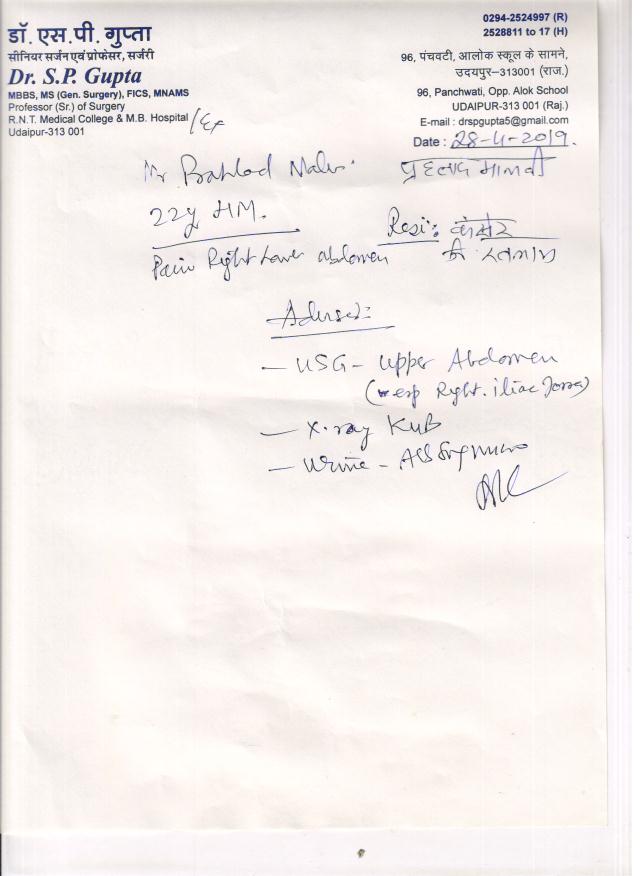 डॉ. एस.पी. गुप्ता
सीनियर सर्जन एवं प्रोफेसर, सर्जरी
Dr. S.P. Gupta
MBBS, MS (Gen. Surgery), FICS, MNAMS
Professor (Sr.) of Surgery
R.N.T. Medical College & M.B. Hospital /Ex
Udaipur-313 001
0294-2524997 (R)
2528811 to 17 (H)
96, पंचवटी, आलोक स्कूल के सामने,
उदयपुर–313001 (राज.)
96, Panchwati, Opp. Alok School
UDAIPUR-313 001 (Raj.)
E-mail : drspgupta5@gmail.com
Date : 28-4-2019.
Mr प्रहलाद मालवी
22y HM.
Resi:
Pain Right Lower abdomen
Advised:
— USG - Upper Abdomen
(esp Right. iliac fossa)
— X-ray KUB
— Urine -